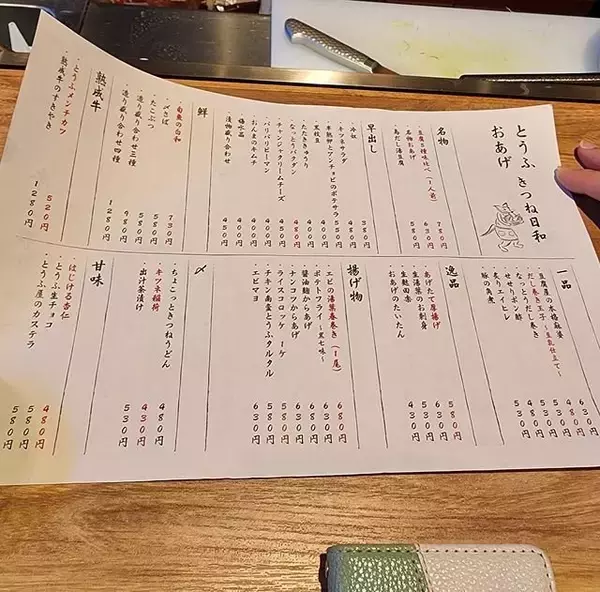 とうふ きつね日和
おあげ
名物
・豆腐5種味比べ(1人前) 780円
・名物おあげ 630円
・鳥だし湯豆腐
早出し
・冷奴 380円
・キツネサラダ 480円
・本熟卵とアンチョビのポテサラ 550円
・黒枝豆
・たたききゅうり
・なっとうバクダン 480円
・チャンジャクリームチーズ
・バリバリピーマン 400円
・おんまのキムチ 400円
・漬物盛り合わせ 450円
鮮
・旬菜の白和 730円
・〆さば 580円
・たこぶつ 580円
・造り盛り合わせ三種 980円
・造り盛り合わせ四種 1280円
熟成牛
・とうふメンチカツ 520円
・熟成牛のすきやき 1280円
一品
・豆腐屋の本格麻婆 630円
・だし巻き玉子~豆乳仕立て~ 480円
・なっとうだし巻き
・せせりポン酢
・炙りエイヒレ
・豚の角煮
逸品
・あげたて厚揚げ 580円
・生湯葉のお刺身
・生麩田楽
・おあげのたいたん
揚げ物
・エビの湯葉春巻き(1尾) 680円
・ポテトフライ~黒七味~
・醤油麹からあげ 680円
・ナンコツからあげ
・ライスコロッケ
・チキン南蛮とうふタルタル 630円
・エビマヨ 630円
〆
・ちょこっときつねうどん 480円
・キツネ稲荷 430円
・出汁茶漬け 530円
甘味
・はじける杏仁 480円
・とうふ生チョコ 580円
・とうふ屋のカステラ 580円